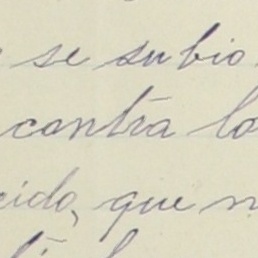 se subio
contra lo
cido, que n